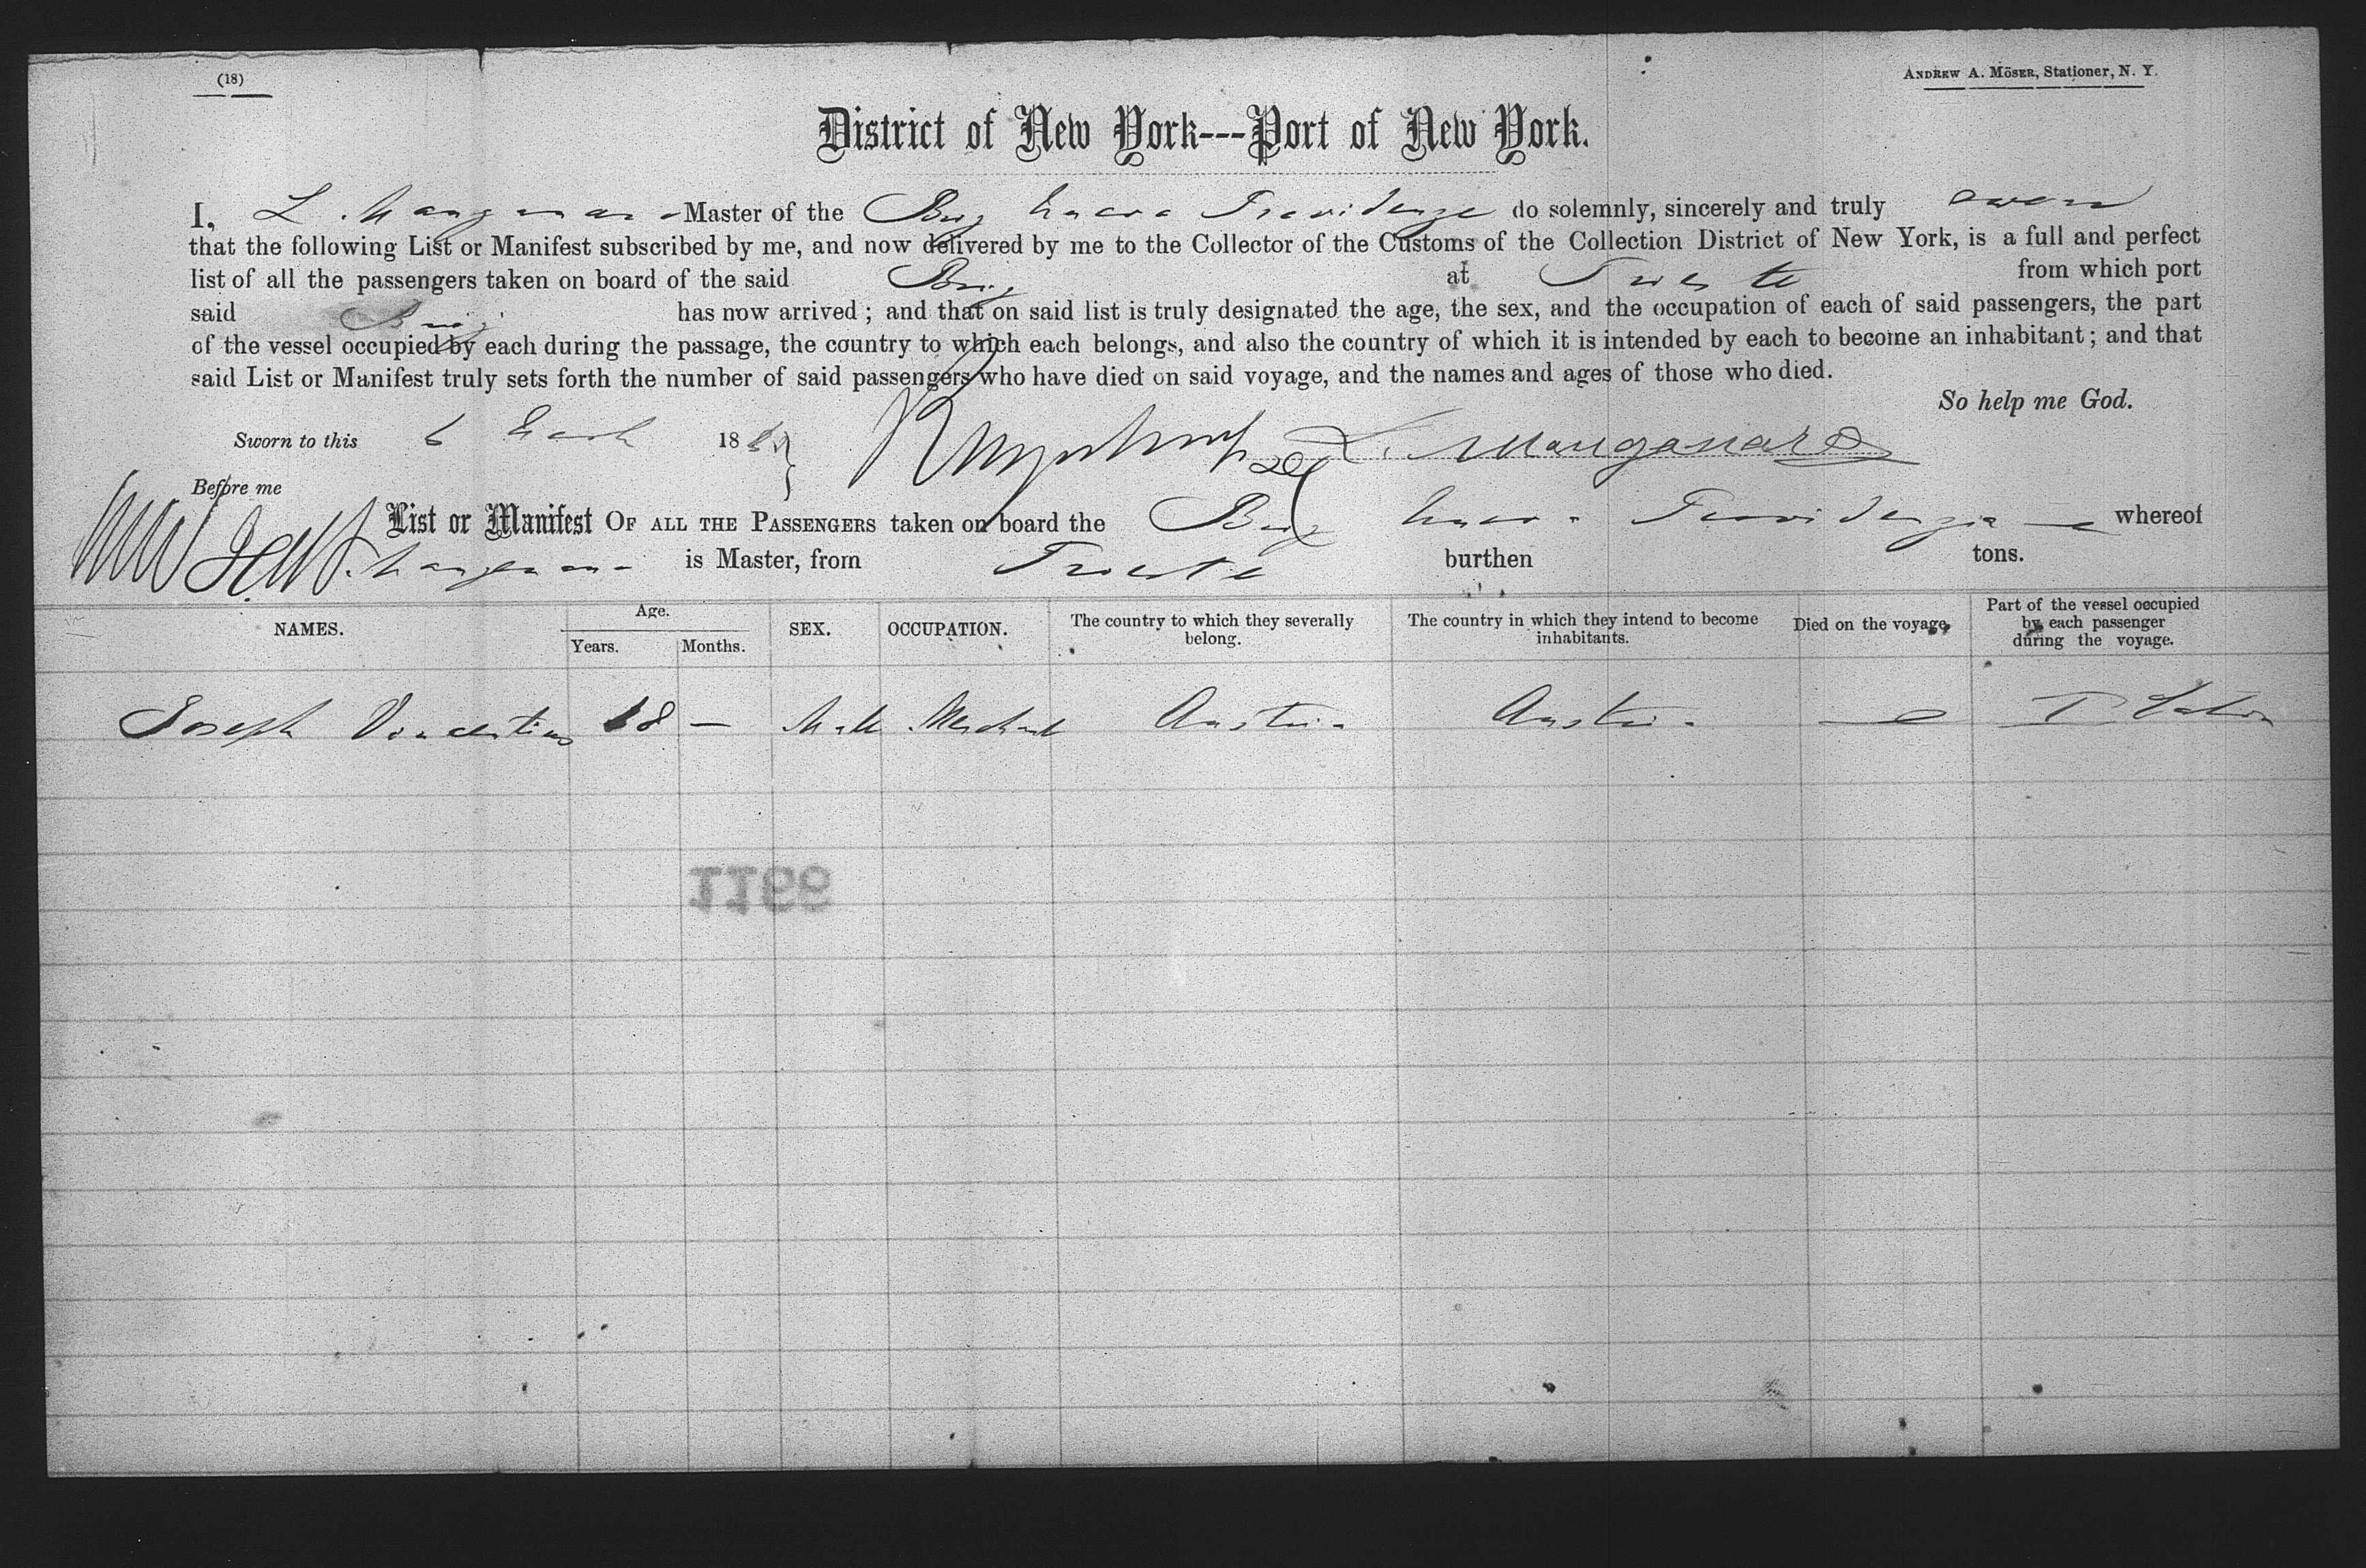 (18)
ANDREW A. MÖSER, Stationer, N. Y.
District of New York---Port of New York.
I, L Master of the Brig Providenza do solemnly, sincerely and truly swear
that the following List or Manifest subscribed by me, and now delivered by me to the Collector of the Customs of the Collection District of New York, is a full and perfect
list of all the passengers taken on board of the said Brig at Trieste from which port
said Brig has now arrived; and that on said list is truly designated the age, the sex, and the occupation of each of said passengers, the part
of the vessel occupied by each during the passage, the country to which each belongs, and also the country of which it is intended by each to become an inhabitant; and that
said List or Manifest truly sets forth the number of said passengers who have died on said voyage, and the names and ages of those who died.
So help me God.
Sworn to this 6 March 18 L. Manganaro
Before me
List or Manifest OF ALL THE PASSENGERS taken on board the Brig Providenzia whereof
is Master, from Trieste burthen tons.
NAMES. Age. Years. Months. SEX. OCCUPATION. The country to which they severally belong. The country in which they intend to become inhabitants. Died on the voyage. Part of the vessel occupied by each passenger during the voyage.
Joseph 18 — Male Merchant Austria Austria — Cabin
1166